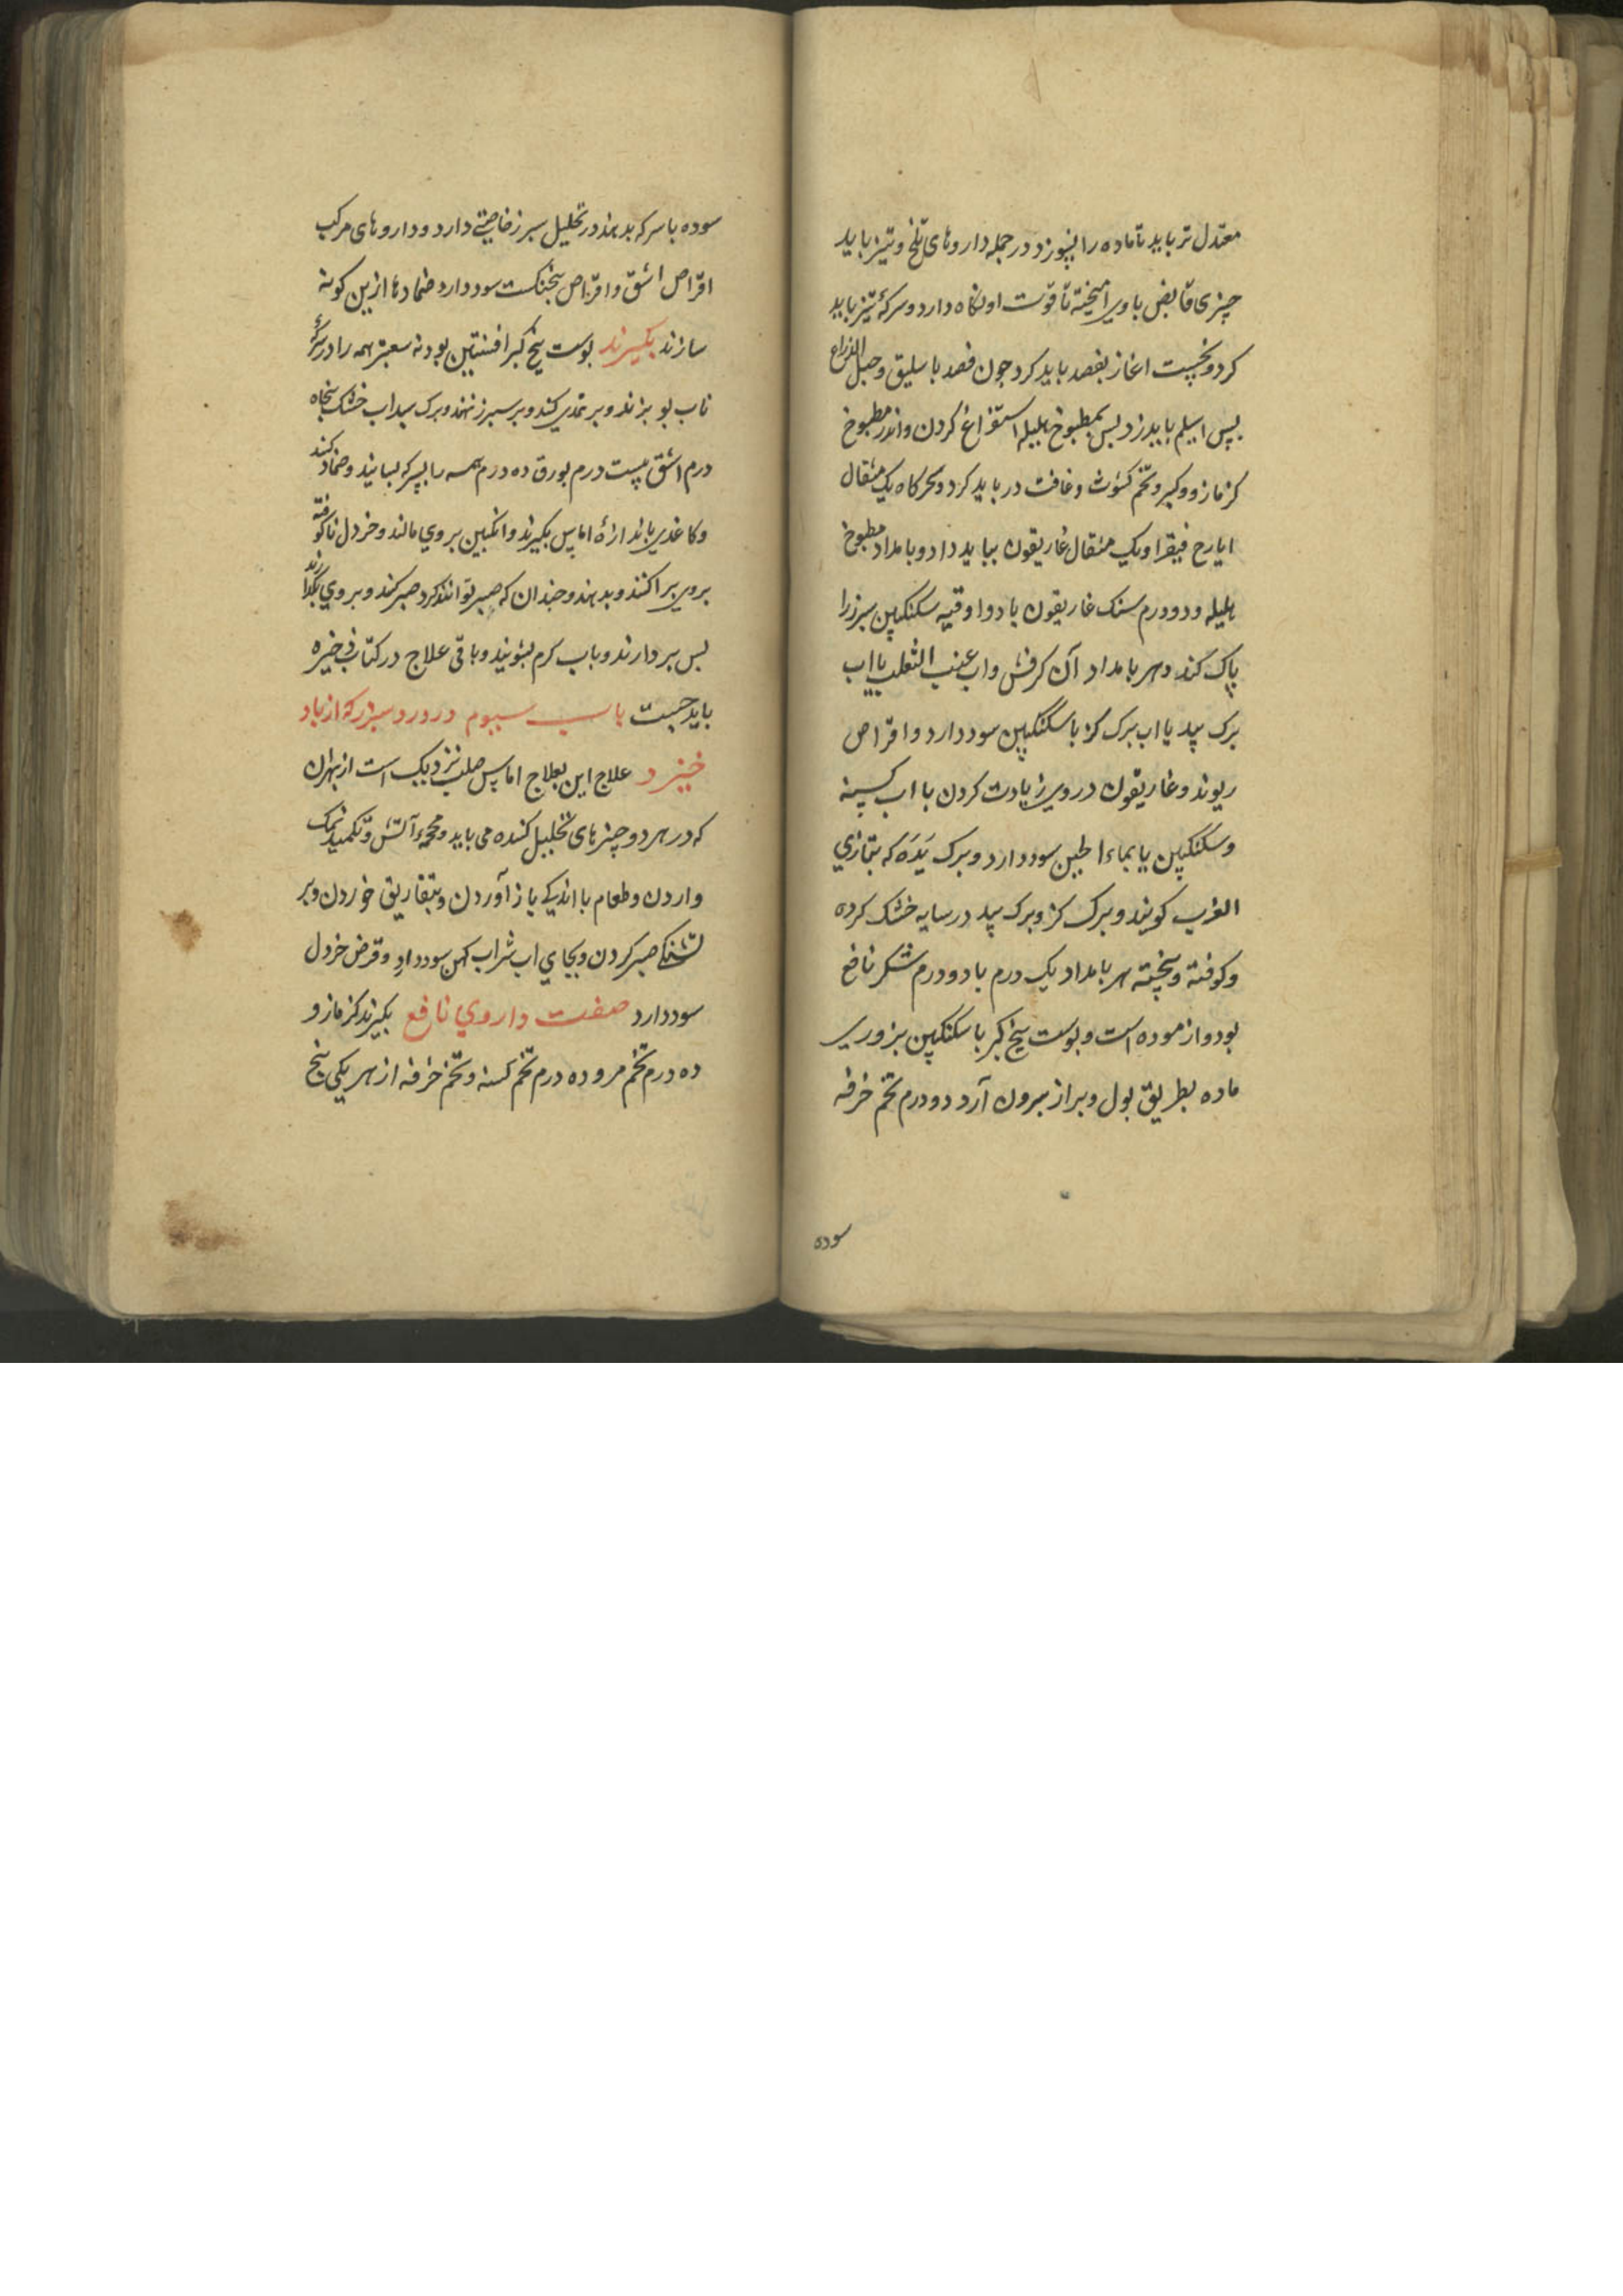 معتدل تر باید تا ماده را نسوزد و در جمله داروهای تلخ و تیز باید
چیزی قابض با وی امیخته تا قوت او نکاه دارد و سرکۀ تیز باید
کرد و نخست اغاز بفصد باید کرد چون فصد باسلیق و حبل الذراع
پس اسیلم باید زد پس بمطبوخ هلیله استفراغ کردن و اندر مطبوخ
کزمازو و کبر و تخم کشوث و غافت در باید کرد و سحرکاه یک مثقال
ایارج فیقرا و یک مثقال غاریقون بباید داد و بامداد مطبوخ
هلیله و دو درم سنک غاریقون با دو اوقیه سکنکبین سبرز را
پاک کند و هر بامداد آن کرفش و اب عنب الثعلب یا اب
برک بید یا اب برک کز با سکنکبین سود دارد و اقراص
ریوند و غاریقون در وی زیادت کردن با اب کسنه
و سکنکبین یا بماء الجبن سود دارد و برک یَدَه که بتازی
الغرب کویند و برک کز و برک بید در سایه خشک کرده
و کوفته و پخته هر بامداد یک درم با دو درم شکر نافع
بود و ازموده است و پوست بیخ کبر با سکنکبین بزوری
ماده بطریق بول و براز بیرون آرد دو درم تخم خرفه
سوده
سوده با سرکه بدهند در تحلیل سبرز خاصیتی دارد و داروهای مرکب
اقراص اشق و اقراص پنجنکست سود دارد ضمادها ازین کونه
سازند بکیرند پوست بیخ کبر افسنتین پودنه سعتر همه را در سرکۀ
ناب بپزند و بر نمدی کنند و بر سبرز نهند و برک سداب خشک پنجاه
درم اشق بیست درم بورق ده درم همه را بسرکه بسایند و ضماد کنند
و کاغدی باندازۀ اماس بکیرند و انکبین بر وی مالند و خردل نا کوفته
بر وی پراکنند و بدهند و چندان که صبر توانند کرد صبر کنند و بر وی بکذارند
پس بردارند و باب کرم بشویند و باقی علاج در کتاب ذخیره
باید جست باب سیوم در ورد سبرز که از باد
خیزد علاج این بعلاج اماس صلب نزدیک است از بهر ان
که در هر دو چیزهای تحلیل کننده می باید و محجمۀ آتش و تکمید نمک
و اردن و طعام با اندکی باز آوردن و بتفاریق خوردن و بر
تشنکی صبر کردن و بجای اب شراب کهن سود دارد و قرص خردل
سود دارد صفت داروی نافع بکیرند کزمازو
ده درم تخم مرو ده درم تخم کسنه و تخم خرفه از هر یکی پنج